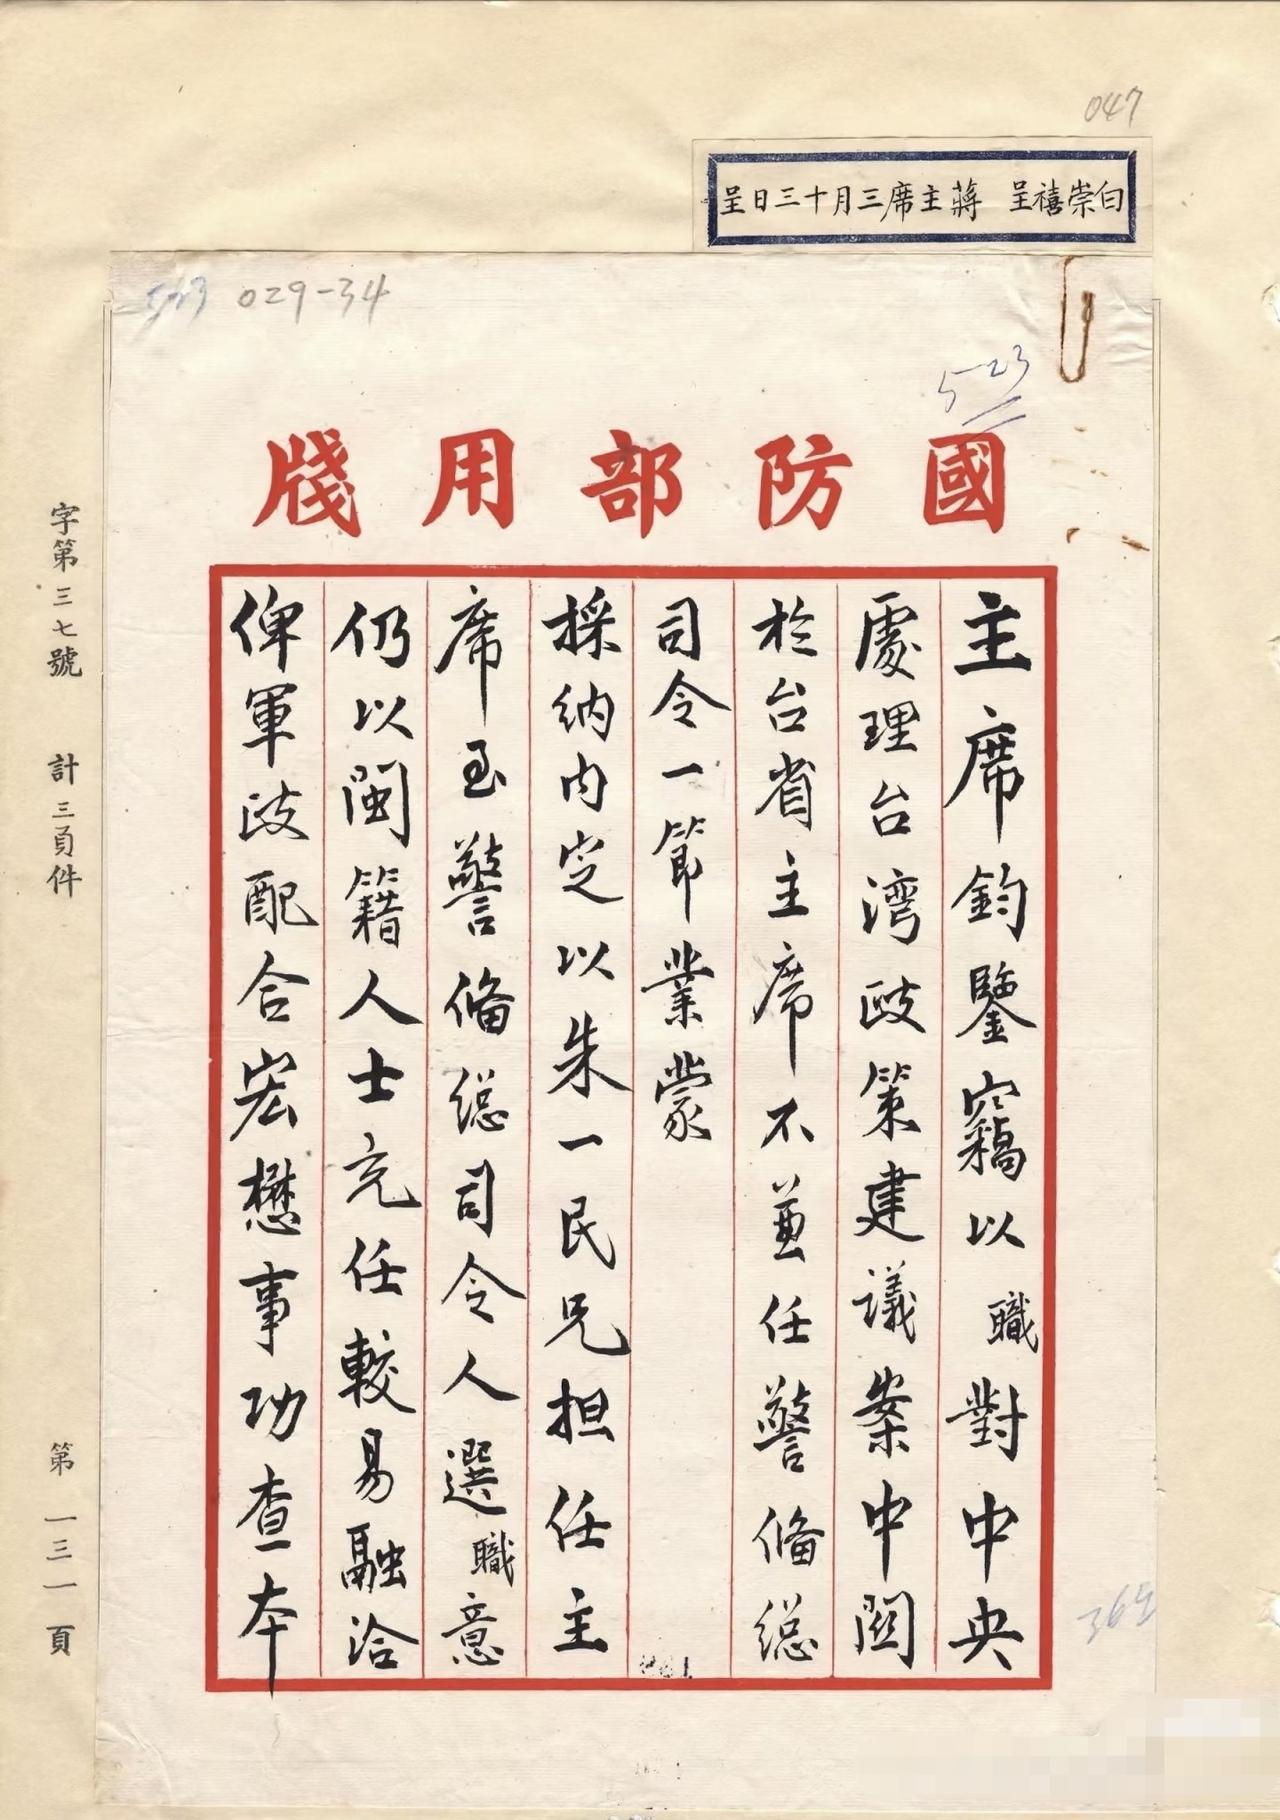 047
白崇禧呈 蔣主席三月十三日呈
523 029-34
523
國防部用牋
主席鈞鑒竊以職對中央
處理台灣政策建議案中關
於台省主席不兼任警備總
司令一節業蒙
採納內定以朱一民兄担任主
席至警備總司令人選職意
仍以閩籍人士充任較易融洽
俾軍政配合宏懋事功查本
字第三七號 計三頁件 第一三一頁